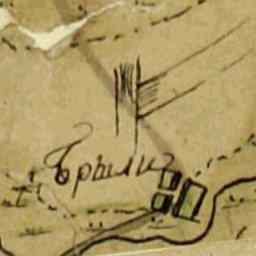 Брыли